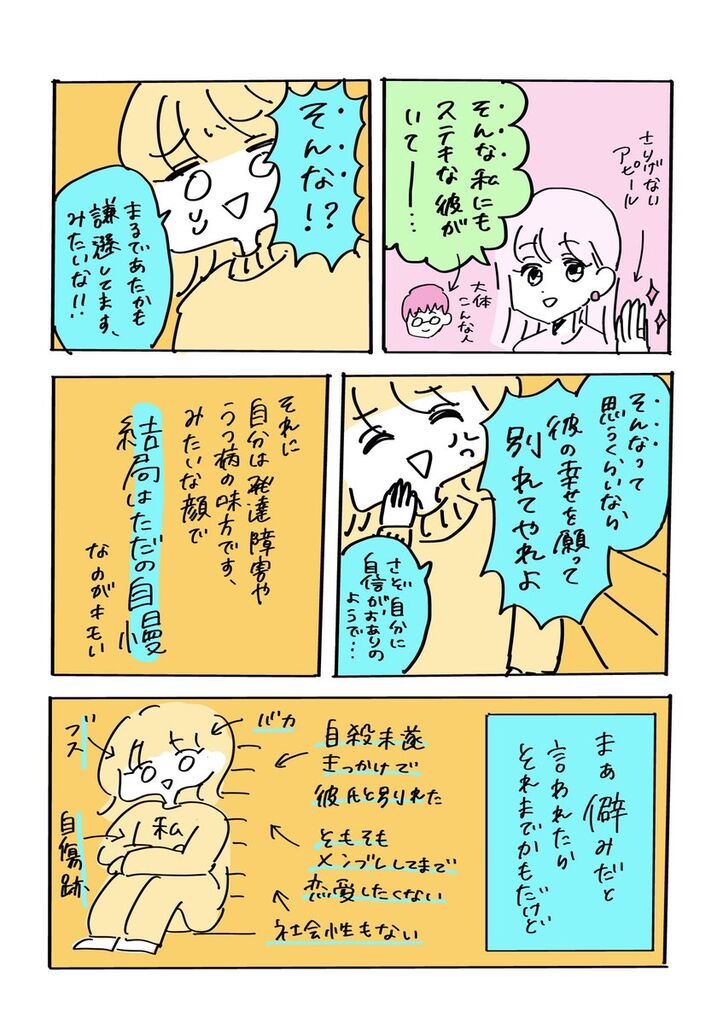 さりげない
アピール
そんな私にも
ステキな彼が
いてー…
大体
こんな人
そんな!?
まるであたかも
謙遜してます、
みたいな!!
そんなって
思うくらいなら
彼の幸せを願って
別れてやれよ
さぞ自分に
自信がおありの
ようで…
それに
自分は発達障害や
うつ病の味方です、
みたいな顔で
結局はただの自慢
なのがキモい
まぁ僻みだと
言われたら
それまでかもだけど
自殺未遂
きっかけで
彼氏と別れた
そもそも
メンブレしてまで
恋愛したくない
社会性もない
バカ
ブス
私
自傷跡